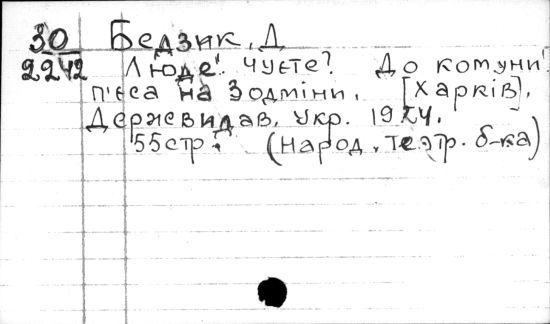 30 Бедзик, Д
2242 Люде! чуєте? До комуни!
п'єса на 3 одміни. [Харків],
Держевидав. Укр. 1924.
55 стр. (народ. театр. б-ка)